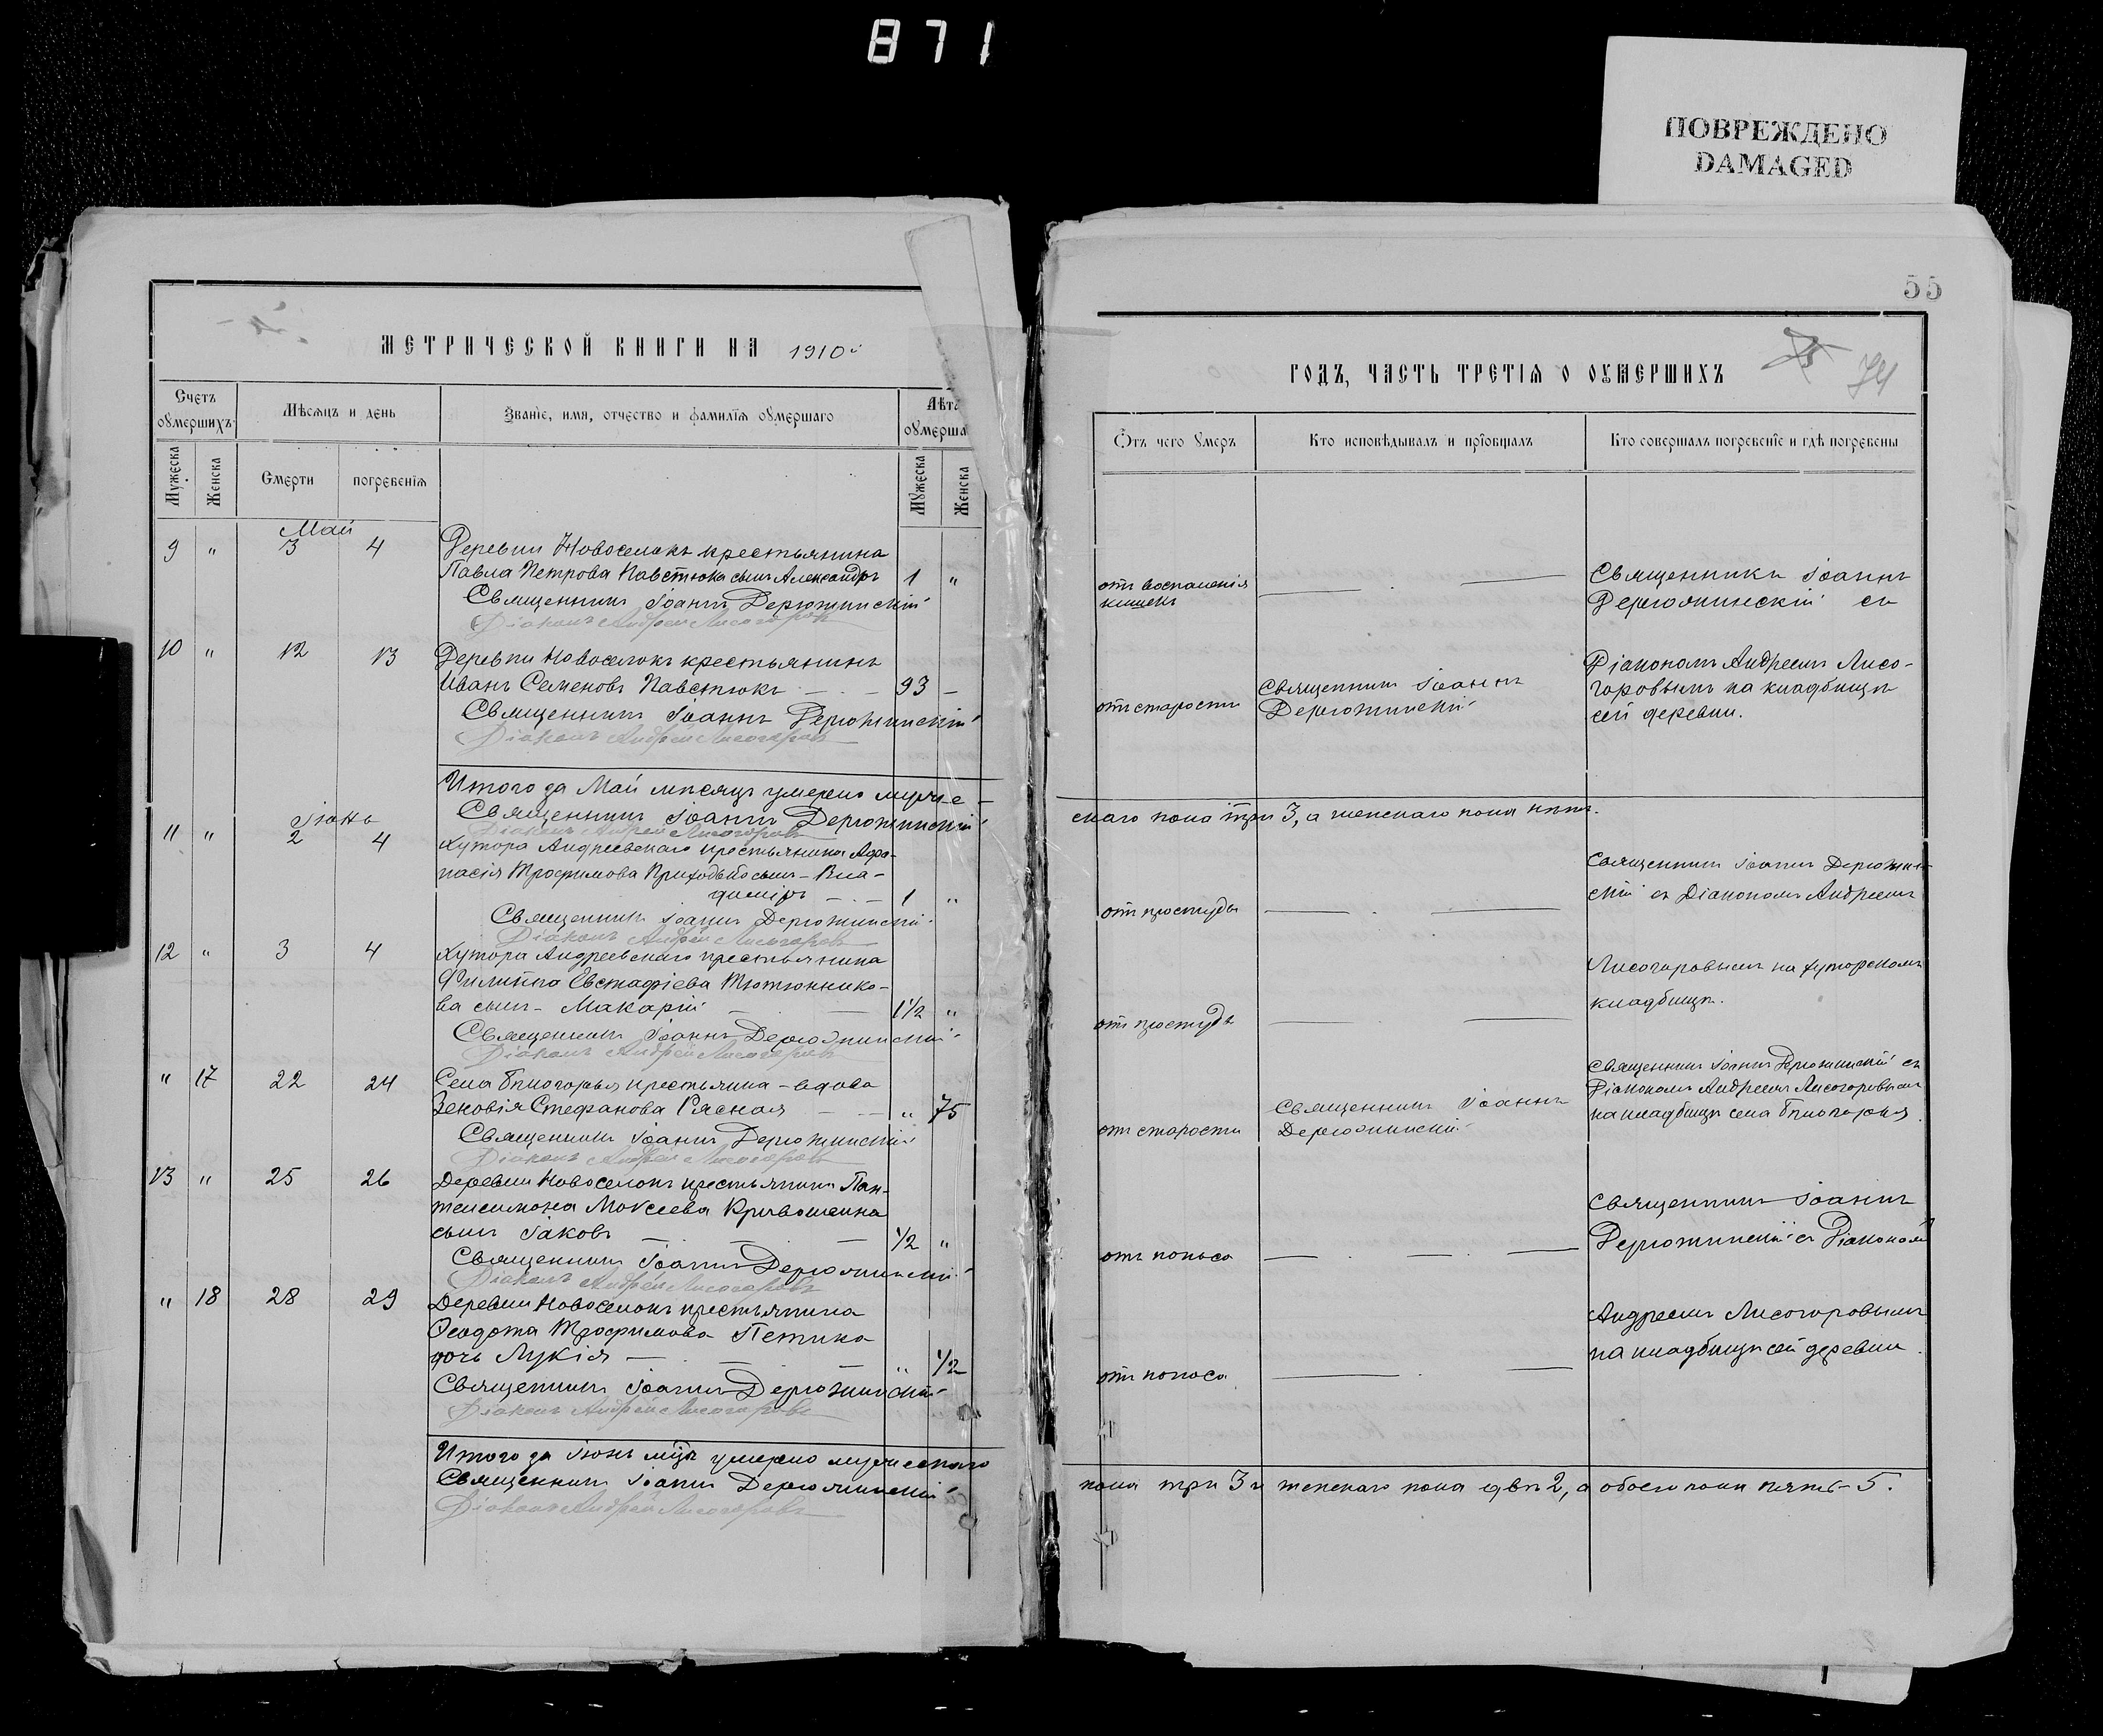 871
ПОВРЕЖДЕНО
DAMAGED
МЕТРИЧЕСКОЙ КНИГИ НА 1910й
Счетъ оумершихъ
Мѣсяцъ и день
Званїе, имя, отчество и фамилїя оумершаго
Лѣта
оумерша
Мужеска
Женска
Смерти
погребенїя
Мужеска
Женска
Май
9 " 3 4 Деревни Новоселокъ крестьянина
Павла Петрова Павстюка сынъ Александръ 1 "
Священникъ Іоаннъ Дерюжинскій
Діаконъ Андрей Лисогоровъ
10 " 12 13 Деревни Новоселокъ крестьянинъ
Иванъ Семеновъ Павстюкъ — 93 —
Священникъ Іоаннъ Дерюжинскій
Діаконъ Андрей Лисогоровъ
Итого за Май мѣсяцъ умерло муже-
Священникъ Іоаннъ Дерюжинскій
Діаконъ Андрей Лисогоровъ
Іюнь
11 " 2 4 Хутора Андреевскаго крестьянина Афа-
насія Трофимова Приходько сынъ - Вла-
диміръ — 1 "
Священникъ Іоаннъ Дерюжинскій
Діаконъ Андрей Лисогоровъ
12 " 3 4 Хутора Андреевскаго крестьянина
Филиппа Евстафіева Тютюннико-
ва сынъ - Макарій — 1½ "
Священникъ Іоаннъ Дерюжинскій
Діаконъ Андрей Лисогоровъ
" 17 22 24 Села Бѣлогорья крестьянка - вдова
Зеновія Стефанова Рясная — " 75
Священникъ Іоаннъ Дерюжинскій
Діаконъ Андрей Лисогоровъ
13 " 25 26 Деревни Новоселокъ крестьянина Пан-
телеимона Моѵсеева Кривошеина
сынъ Іаковъ — ½ "
Священникъ Іоаннъ Дерюжинскій
Діаконъ Андрей Лисогоровъ
" 18 28 29 Деревни Новоселокъ крестьянина
Ѳеодота Трофимова Петика
дочь Лукія — " ½
Священникъ Іоаннъ Дерюжинскій
Діаконъ Андрей Лисогоровъ
Итого за Іюнь мцъ умерло мужескаго
Священникъ Іоаннъ Дерюжинскій
Діаконъ Андрей Лисогоровъ
55
74
ГОДЪ, ЧАСТЬ ТРЕТІЯ О ОУМЕРШИХЪ
Отъ чего умеръ
Кто исповѣдывалъ и прїобщалъ
Кто совершалъ погребенїе и гдѣ погребены
отъ воспаленія
кишекъ
Священникъ Іоаннъ
Дерюжинскій съ
отъ старости
Священникъ Іоаннъ
Дерюжинскій
Діакономъ Андреемъ Лисо-
горовымъ на кладбищѣ
сей деревни.
скаго пола три 3, а женскаго пола нѣтъ.
отъ простуды
Священникъ Іоаннъ Дерюжин-
скій съ Діакономъ Андреемъ
отъ простуды
Лисогоровымъ на хуторскомъ
кладбищѣ.
отъ старости
Священникъ Іоаннъ
Дерюжинскій
Священникъ Іоаннъ Дерюжинскій съ
Діакономъ Андреемъ Лисогоровымъ
на кладбищѣ села Бѣлогорья.
отъ поноса
Священникъ Іоаннъ
Дерюжинскій съ Діакономъ
отъ поноса
Андреемъ Лисогоровымъ
на кладбищѣ сей деревни.
пола три 3 и женскаго пола двѣ 2, а обоего пола пять - 5.